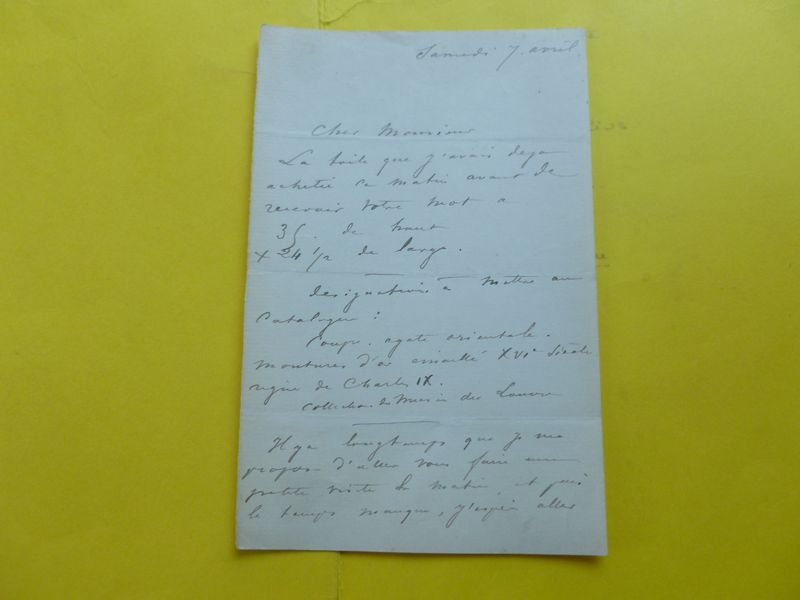 Samedi 7 avril.
Cher Monsieur
La toile que j'avais deja
achetée ce matin avant de
recevoir votre mot a
35. de haut
x 24 1/2 de large.
designations à mettre au
Catalogue :
Coupe. agate orientale.
Montures d'or émaillé XVIe Siècle
regne de Charles IX.
Collection du Musée du Louvre
Il y a longtemps que je me
propose d'aller vous faire une
petite visite le matin, et puis
le temps manque, j'espère aller